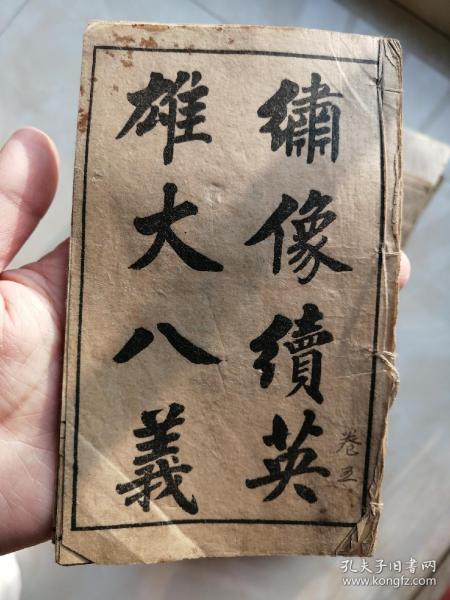 繡像續英
雄大八義
卷五
孔夫子旧书网
www.kongfz.com